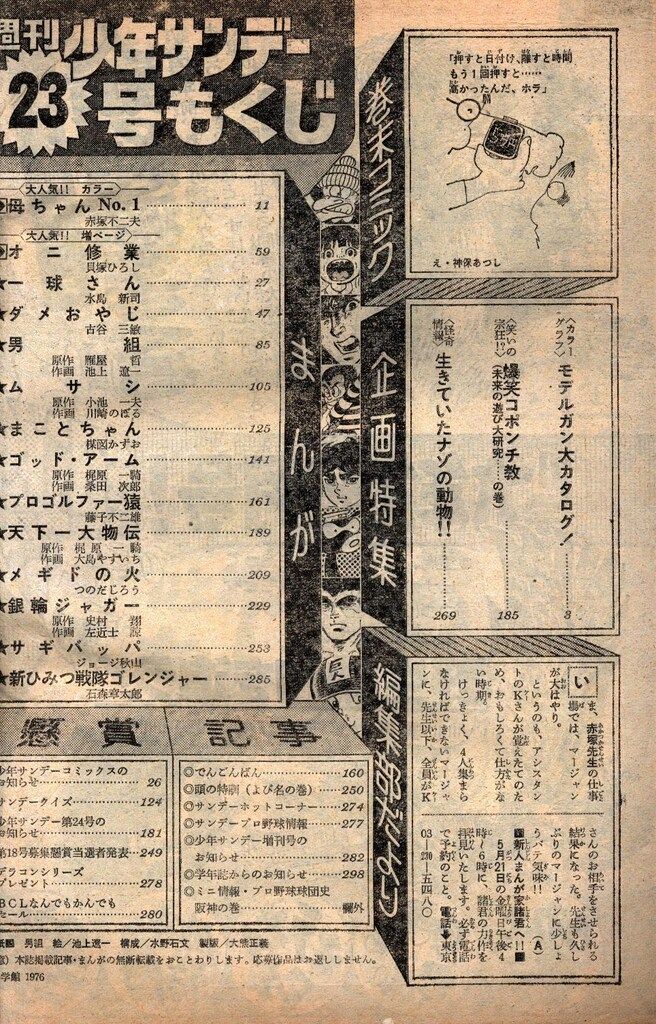 週刊少年サンデー
23号もくじ
大人気!! カラー
母ちゃんNo.1 11
赤塚不二夫
大人気!! 増ページ
オニ修業 59
貝塚ひろし
★一球さん 27
水島 新司
★ダメおやじ 47
古谷 三敏
★男組 85
原作 雁屋 哲
作画 池上 遼一
★ムサシ 105
原作 小池 一夫
作画 川崎のぼる
★まことちゃん 125
楳図かずお
★ゴッド・アーム 141
原作 梶原 一騎
作画 桑田 次郎
★プロゴルファー猿 161
藤子不二雄
★天下一大物伝 189
原作 梶原 一騎
作画 大島やすいち
★メギドの火 209
つのだじろう
★銀輪ジャガー 229
原作 史村 翔
作画 左近士 諒
★サギバッパ 253
ジョージ秋山
★新ひみつ戦隊ゴレンジャー 285
石森章太郎
まんが
巻末コミック
「押すと日付け、離すと時間
もう1回押すと……
高かったんだ、ホラ」
え・神保あつし
企画特集
〈カラーグラフ〉
モデルガン大カタログ! 3
〈笑いの宗狂!?〉
爆笑コポンチ教
(未来の遊び大研究……の巻) 185
〈怪奇情報〉
生きていたナゾの動物!! 269
編集部だより
いま、赤塚先生の仕事
場では、マージャン
が大はやり。
というのも、アシスタン
トのKさんが覚えたてのた
め、おもしろくて仕方がな
い時期。
けっきょく、4人集まら
なければできないマージャ
ンに、先生以下、全員がK
さんのお相手をさせられる
結果になった。先生も久し
ぶりのマージャンに少しょ
うバテ気味!! (A)
■新人まんが家諸君へ!!■
5月21日の金曜日午後4
時〜6時に、諸君の力作を
拝見いたします。必ず電話
で予約のこと。電話▶東京
03―230―五四八〇
懸賞
少年サンデーコミックスの
お知らせ 26
サンデークイズ 124
少年サンデー第24号の
お知らせ 181
第18号募集懸賞当選者発表 249
デラコンシリーズ
プレゼント 278
BCLなんでもかんでも
セール 280
記事
◎でんごんばん 160
◎頭の特訓(よび名の巻) 250
◎サンデーホットコーナー 274
◎サンデープロ野球情報 277
◎少年サンデー増刊号の
お知らせ 282
◎学年誌からのお知らせ 298
◎ミニ情報・プロ野球球団史
阪神の巻 欄外
表紙■ 男組 絵/池上遼一 構成/水野石文 製版/大熊正義
本誌掲載記事・まんがの無断転載をおことわりします。応募作品はお返ししません。
学館 1976